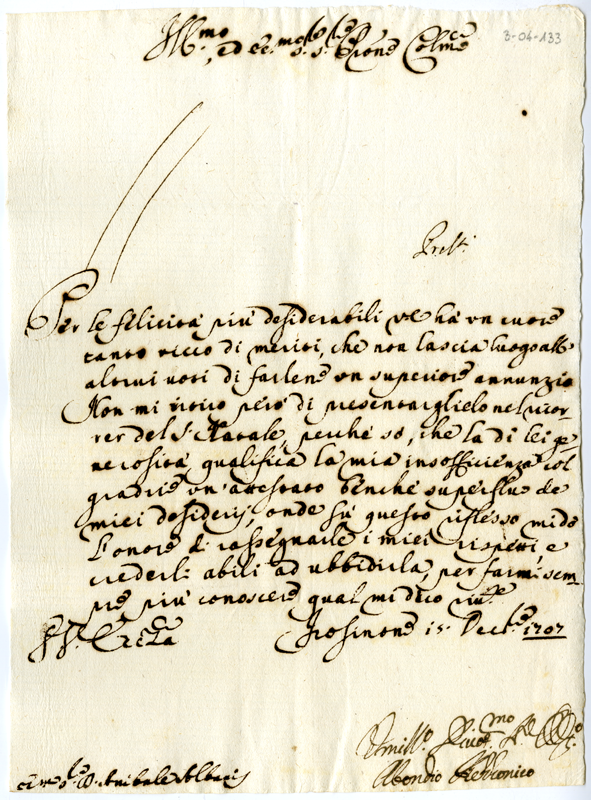 Ill.mo, ed Ecc.mo Sig.re Sig.re Pron Colmo
3-04-133
Per le felicità più desiderabili V.E. ha un cuore
tanto ricco di meriti, che non lascia luogo alli
altrui voti di farlene un superiore annunzio
Non mi ritiro però di presentarglielo nel ricor-
rer del S. Natale, perché so, che la di lei ge-
nerosità qualifica la mia insofficienza col
gradire un'attestato benché superfluo de
miei desiderij, onde sù questo riflesso mi do
l'onore di rassegnarle i miei rispetti, e
crederli abili ad ubbidirla, per farmi sem-
pre più conoscere qual mi dico
Frosinone 15 Decbre 1707
Umill.o
Abondio Rezzonico
D. Annibale Albani